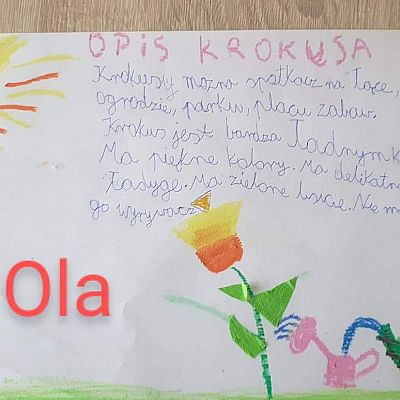 OPIS KROKUSA
Krokusy można spotkacz na łące,
ogrodzie, parku, placu zabaw.
Krokus jest bardza Ładnym k
Ma piękne kolory. Ma delikatn
Ładygę. Ma zielone liście. Nie m
go wyrywacz
Ola